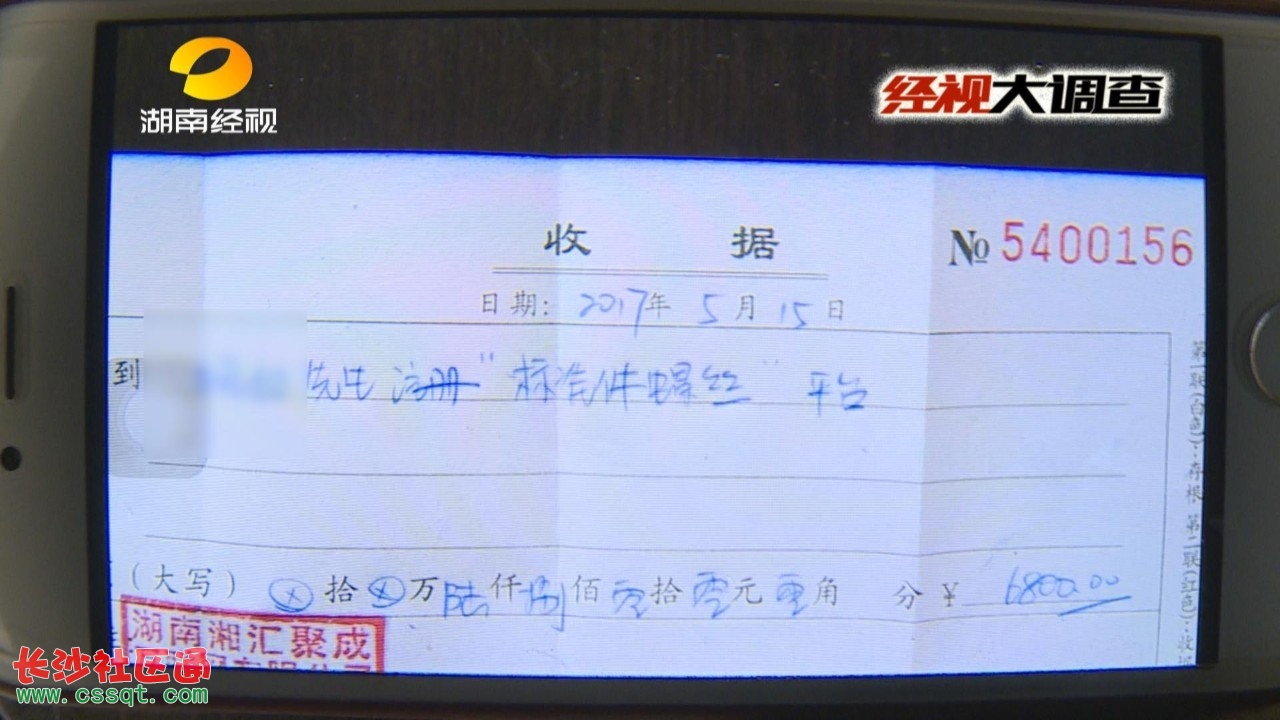 湖南经视
经视大调查
收 据
№ 5400156
日期: 2017年 5月 15日
到 先生 注册 "标准件螺丝" 平台
(大写) ⊗拾⊗万陆仟捌佰零拾零元零角 分 ¥ 6800.00
第一联(白色):存根 第二联(红色):收据
湖南湘汇聚成
长沙社区通
www.cssqt.com